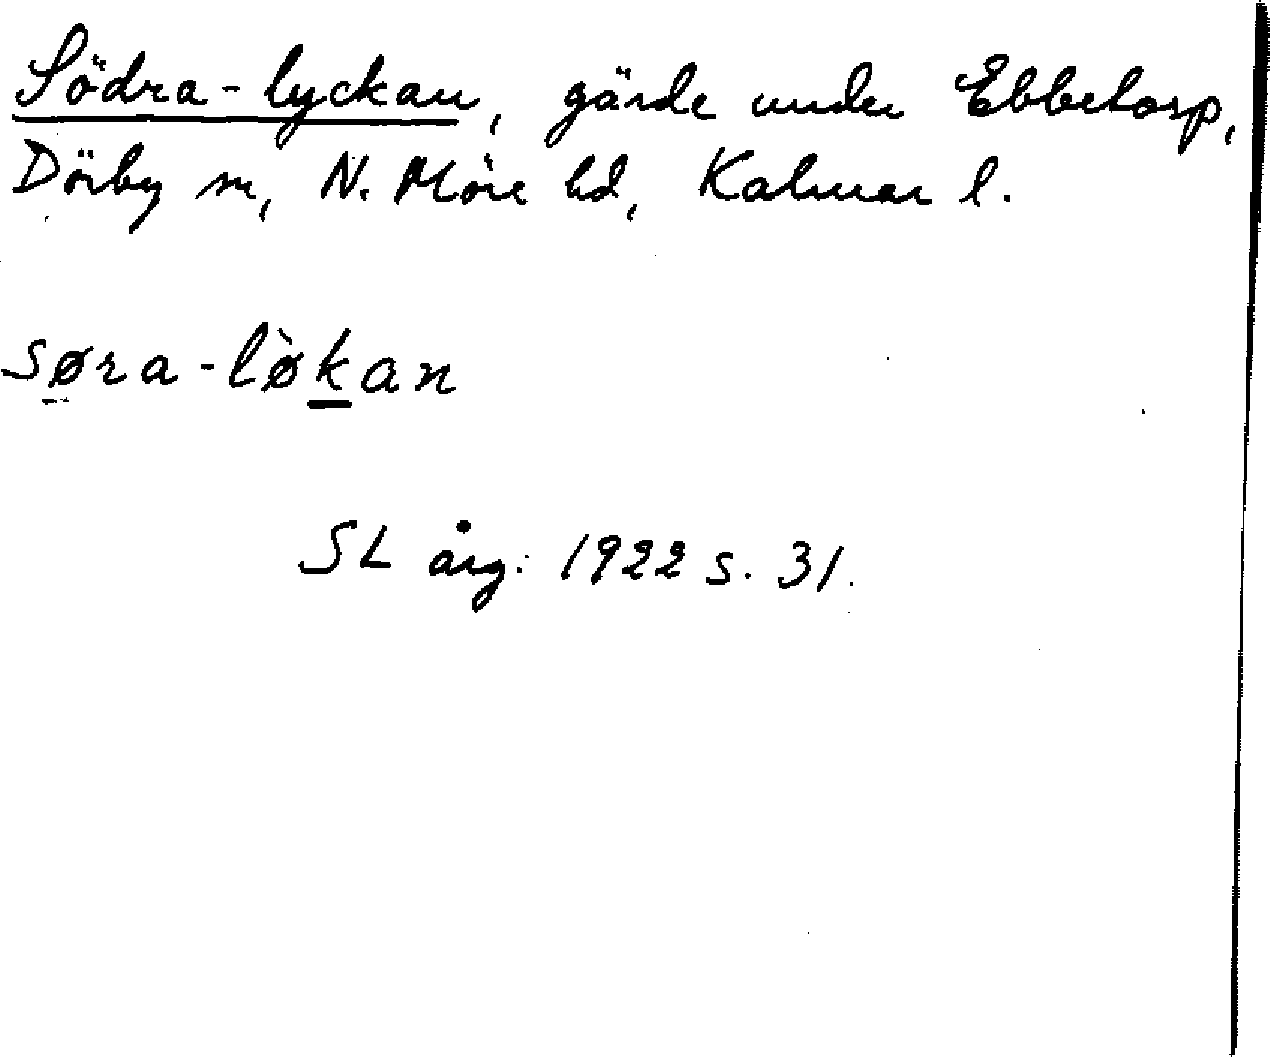 Södra-lyckan, gärde under Ebbetorp,
Dörby sn, N. Möre hd, Kalmar l.
søra-lø̀kan
SL årg. 1922 s. 31.